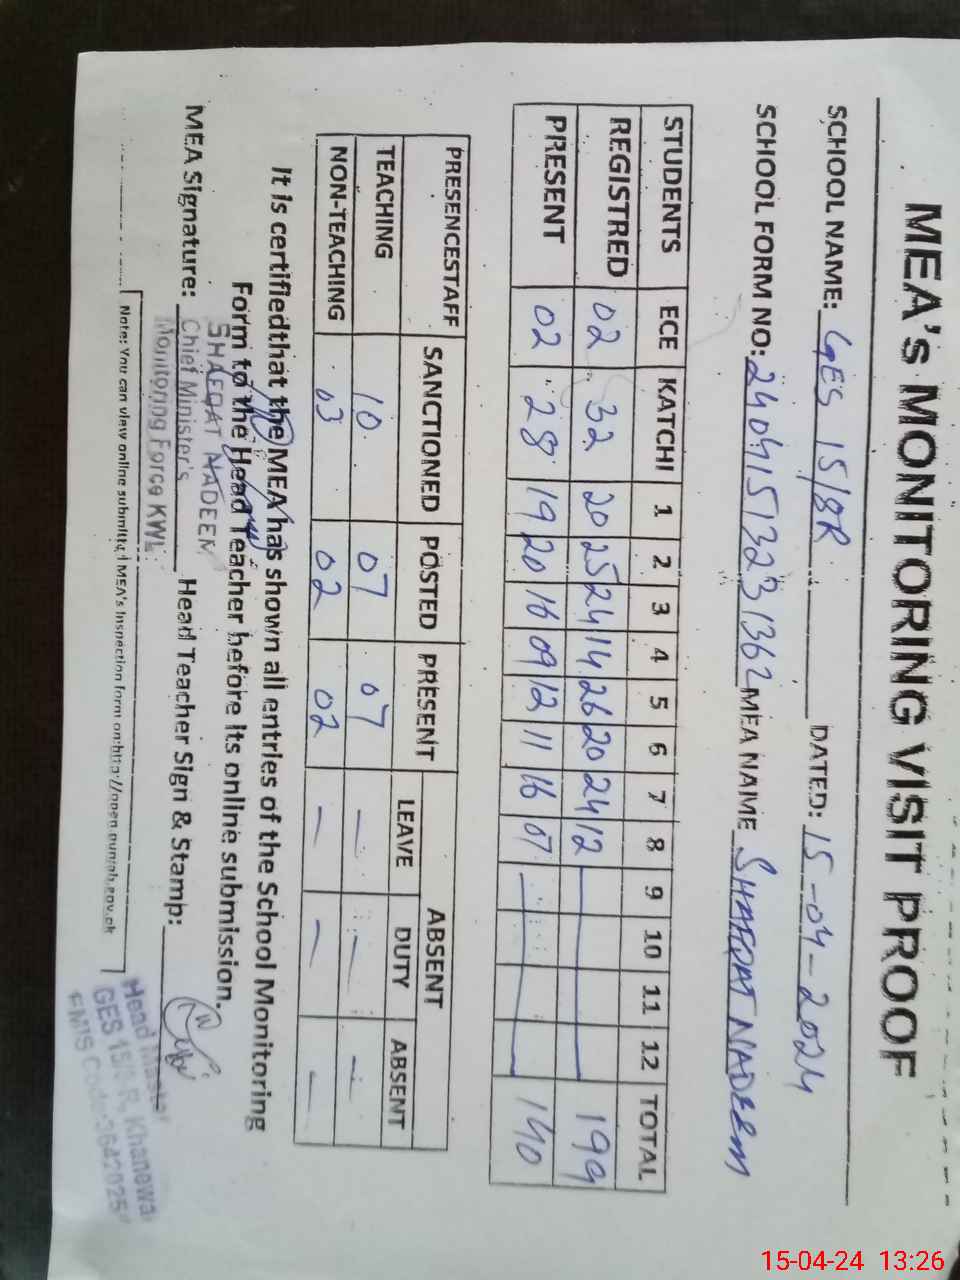 MEA's MONITORING VISIT PROOF
SCHOOL NAME: GES 15/8R DATED: 15-04-2024
SCHOOL FORM NO: 24041513231362 MEA NAME SHAFQAT NADEEM
STUDENTS ECE KATCHI 1 2 3 4 5 6 7 8 9 10 11 12 TOTAL
REGISTRED 02 32 20 25 24 14 26 20 24 12 199
PRESENT 02 28 19 20 16 09 12 11 16 07 140
PRESENCESTAFF SANCTIONED POSTED PRESENT ABSENT
LEAVE DUTY ABSENT
TEACHING 10 07 07 — — —
NON-TEACHING 03 02 02 — — —
It is certifiedthat the MEA has shown all entries of the School Monitoring
Form to the Head Teacher before its online submission.
MEA Signature: Head Teacher Sign & Stamp:
SHAFQAT NADEEM
Chief Minister's
Monitoring Force KWL
Head Master
GES 15/8 R, Khanewal
EMIS Code:
Note: You can view online submitted MEA's Inspection form on:http://open.punjab.gov.pk
15-04-24 13:26